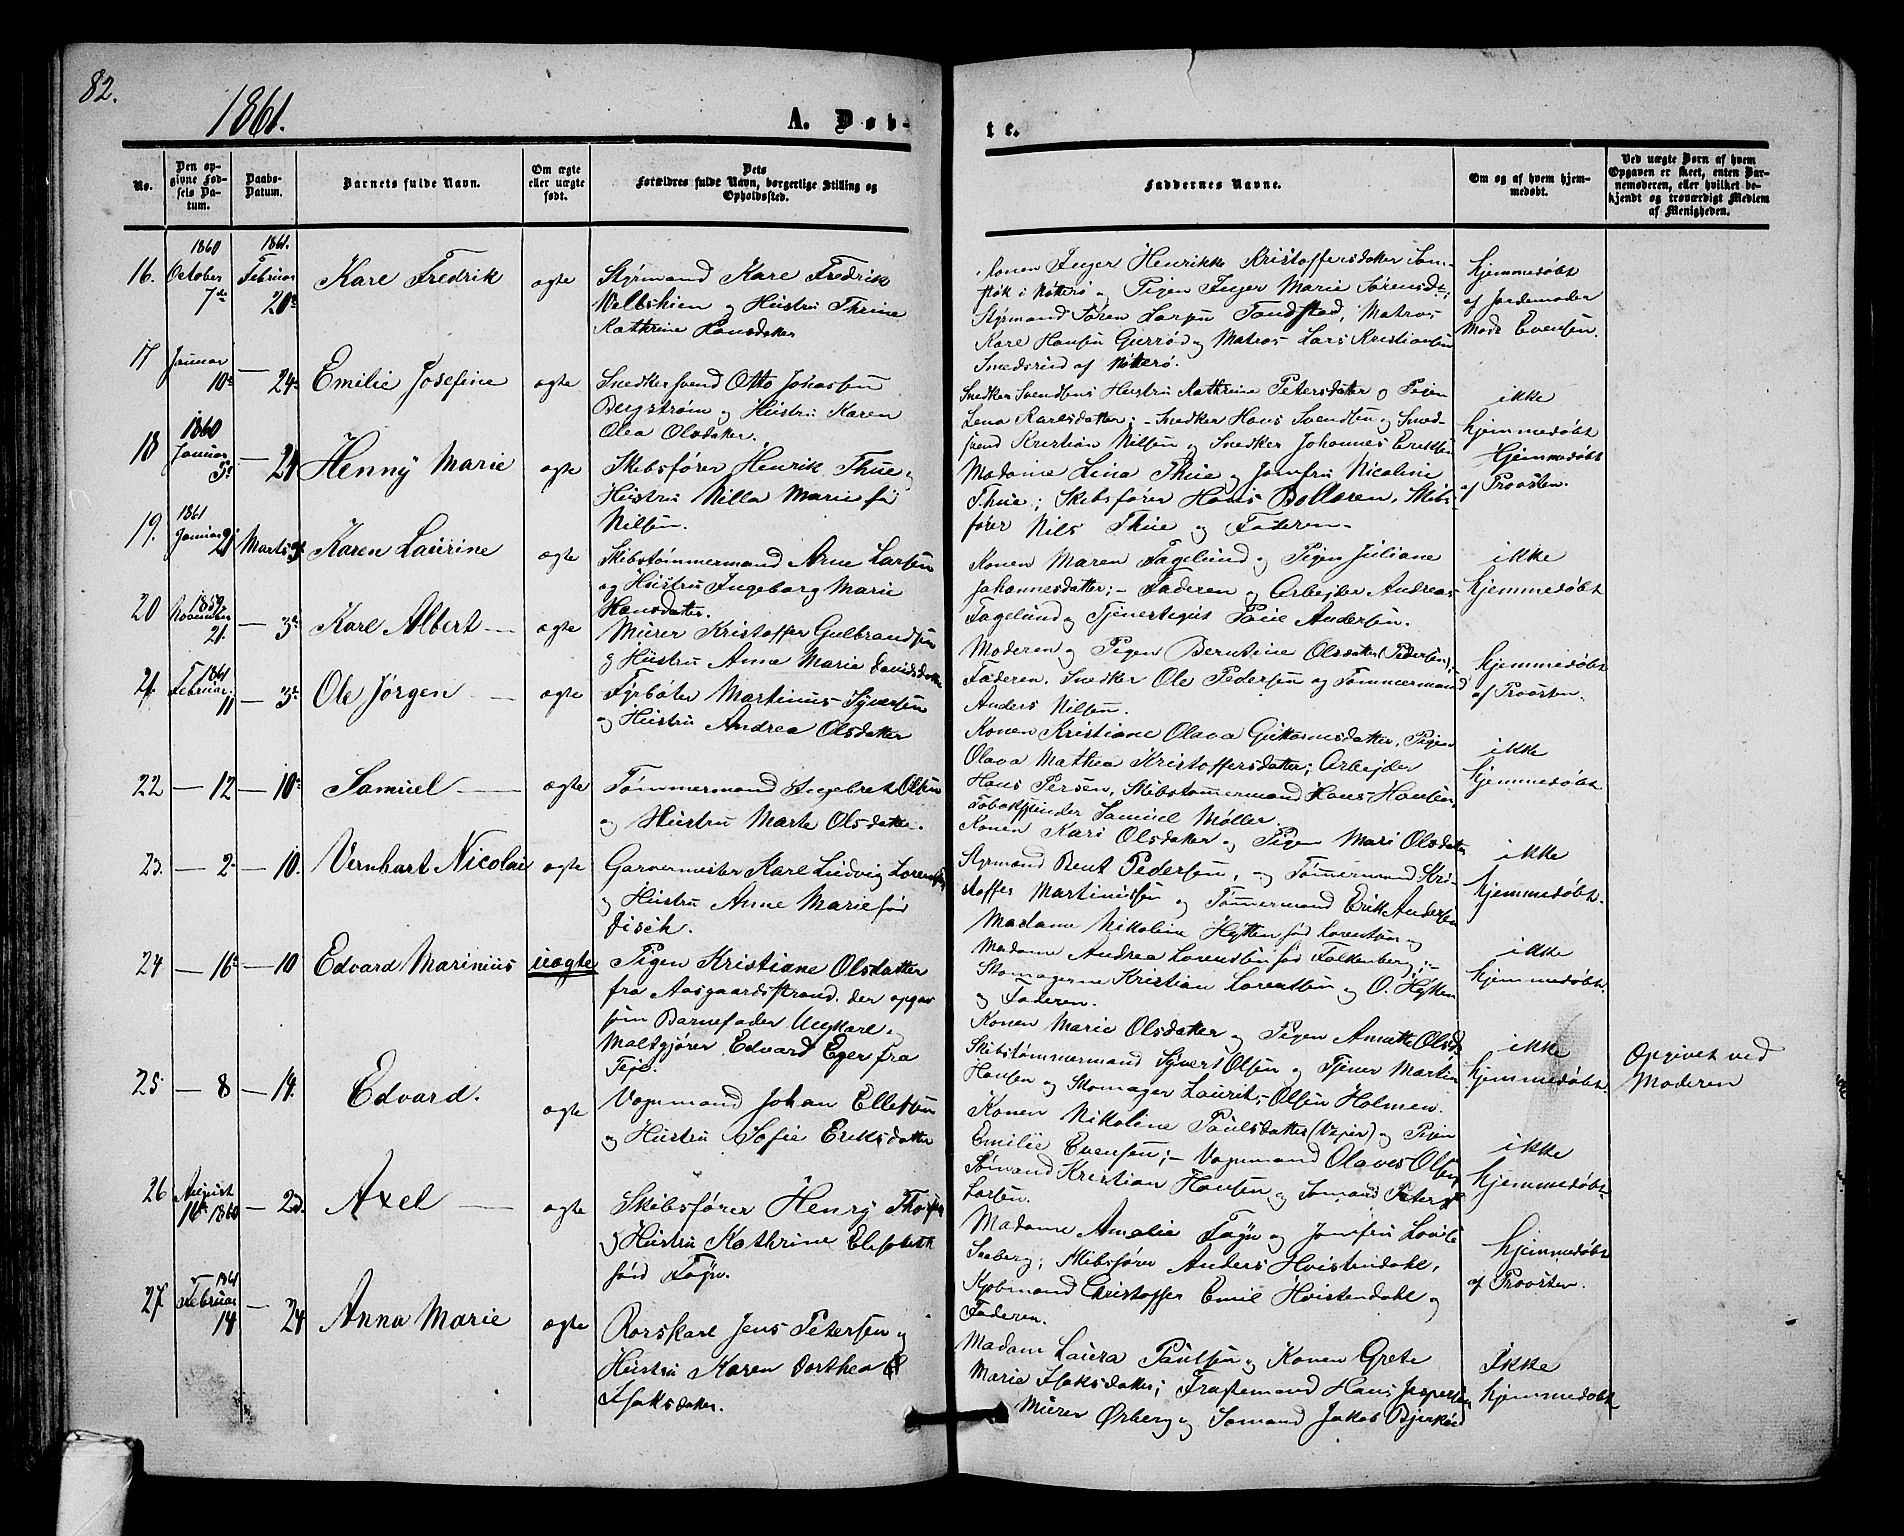 82.
1861.
A. Døb-
te.
No.
Den opgivne Fødsels Datum.
Daabs-Datum.
Barnets fulde Navn.
Om ægte eller uægte født.
Dets Forældres fulde Navn, borgerlige Stilling og Opholdssted.
Faddernes Navne.
Om og af hvem hjemmedøbt.
Ved uægte Børn af hvem Opgaven er skeet, enten Barnemoderen, eller hvilket bekjendt og troværdigt Medlem af Menigheden.
16. 1860 October 7de 1861. Februar 20de Karl Fredrik ægte
Styrmand Karl Fredrik
og Hustru Thrine
Kathrine Hansdatter
Konen Inger Henrikke Kristoffersdatter
i Nøtterø og Pigen Inger Marie Sørensd.;
Styrmand Søren Larsen Tandstad, Matros
Karl Hansen Gurrød og Matros Lars Kristiansen
Smedsrud af Nøtterø.
hjemmedøbt
af Jordemoder
Mads Evensen.
17 Januar 10de — 24. Emilie Josefine ægte
Snedkersvend Otto Johansen
Bergstrøm og Hustru Karen
Olea Olsdatter.
Snedker Svendsens Hustru Kathrine Petersdatter og Pigen
Lena Karlsdatter; - Snedker Hans Svendsen og Sned-
svend Kristian Nilsen og Snedker Johannes Eriksen
ikke
hjemmedøbt
18 1860 Januar 5. — 24 Henny Marie ægte
Skibsfører Henrik Thue og
Hustru Nilla Marie fø
Nilsen.
Madame Lina Thue og Jomfru Nicoline
Thue; Skibsfører Hans Bolleren, Skibs-
fører Nils Thue og Faderen.
Hjemmedøbt
af Provsten.
19. 1861 Januar 21 Marts 3. Karen Laurine ægte
Skibstømmermand Arne Larsen
og Hustru Ingeborg Marie
Hansdatter.
Konen Maren Fagelund og Pigen Juliane
Johannesdatter; - Faderen og Arbejder Andreas
Fagelund og Tjenestegut Paul Andersen.
ikke
hjemmedøbt
20 1859 November 21. — 3. Karl Albert — ægte
Murer Kristoffer Gulbrandsen
og Hustru Anne Marie Davidsdatter
Moderen og Pigen Berntine Olsdatter (Pedersen);
Faderen. Snedker Ole Pedersen og Tømmermand
Anders Nilsen.
hjemmedøbt
af Provsten.
21. 1861 Februar 11 — 3. Ole Jørgen — ægte
Fyrbøter Martinius Syversen
og Hustru Andrea Olsdatter
Konen Kristiane Olava Guttormsdatter, Pigen
Olava Mathea Kristoffersdatter; Arbejder
Hans Persen, Skibstømmermand Hans Hansen,
Tobakspinder Samuel Møller.
ikke
hjemmedøbt
22 — 12 — 10. Samuel — ægte
Tømmermand Ingebret Olsen
og Hustru Marte Olsdatter.
Konen Kari Olsdatter og Pigen Mari Olsdatter
Styrmand Bent Pedersen, og Tømmermand Kri-
stoffer Martinussen og Tømmermand Erik Andersen
ikke
hjemmedøbt.
23. — 2. — 10. Vernhart Nicolai ægte
Garvermester Karl Ludvig Lorentsen
og Hustru Anne Marie fød
Disch.
Madame Nikoline Hytten fød Lorentsen og
Madame Andrea Lorentsen fød Falkenberg; -
Skomagerne Kristian Lorentsen og O. Hytten
og Faderen.
ikke
hjemmedøbt.
24 — 16. — 10 Edvard Marinius uægte
Pigen Kristiane Olsdatter
fra Aasgaardsstrand. der opgav
som Barnefader Ungkarl og
Maltgjører Edvard Eger fra
Teje.
Konen Marie Olsdatter og Pigen Annette Olsd.
Skibstømmermand Syvert Olsen og Tjener Martin
Hansen og Skomager Laurits Olsen Holmen.
ikke
hjemmedøbt
Opgivet ved
Moderen
25 — 8 — 14. Edvard. ægte
Vognmand Johan Ellefsen
og Hustru Sofie Eriksdatter
Konen Nikoline Paulsdatter og Pigen
Emilie Evensen; - Vognmand Olaves Olsen,
Sømand Kristian Hansen og Sømand Peter
Larsen.
ikke
hjemmedøbt
26 August 16. 1860 — 23. Axel — ægte
Skibsfører Henry
og Hustru Kathrine Elisabeth
fød Føyn.
Madame Amalie Føyn og Jomfru Lovise
Seeberg; Skibsfører Anders Hvistendahl,
Kjøbmand Christoffer Emil Hvistendahl og
Faderen.
hjemmedøbt
af Provsten.
27 1861 Februar 14 — 24 Anna Marie ægte
Rorskarl Jens Petersen og
Hustru Karen Dorthea
Isaksdatter.
Madam Laura Paulsen og Konen Grete
Marie Isaksdatter; Fragtemand Hans Jespersen
Murer Ørberg og Sømand Jakob
Ikke
hjemmedøbt